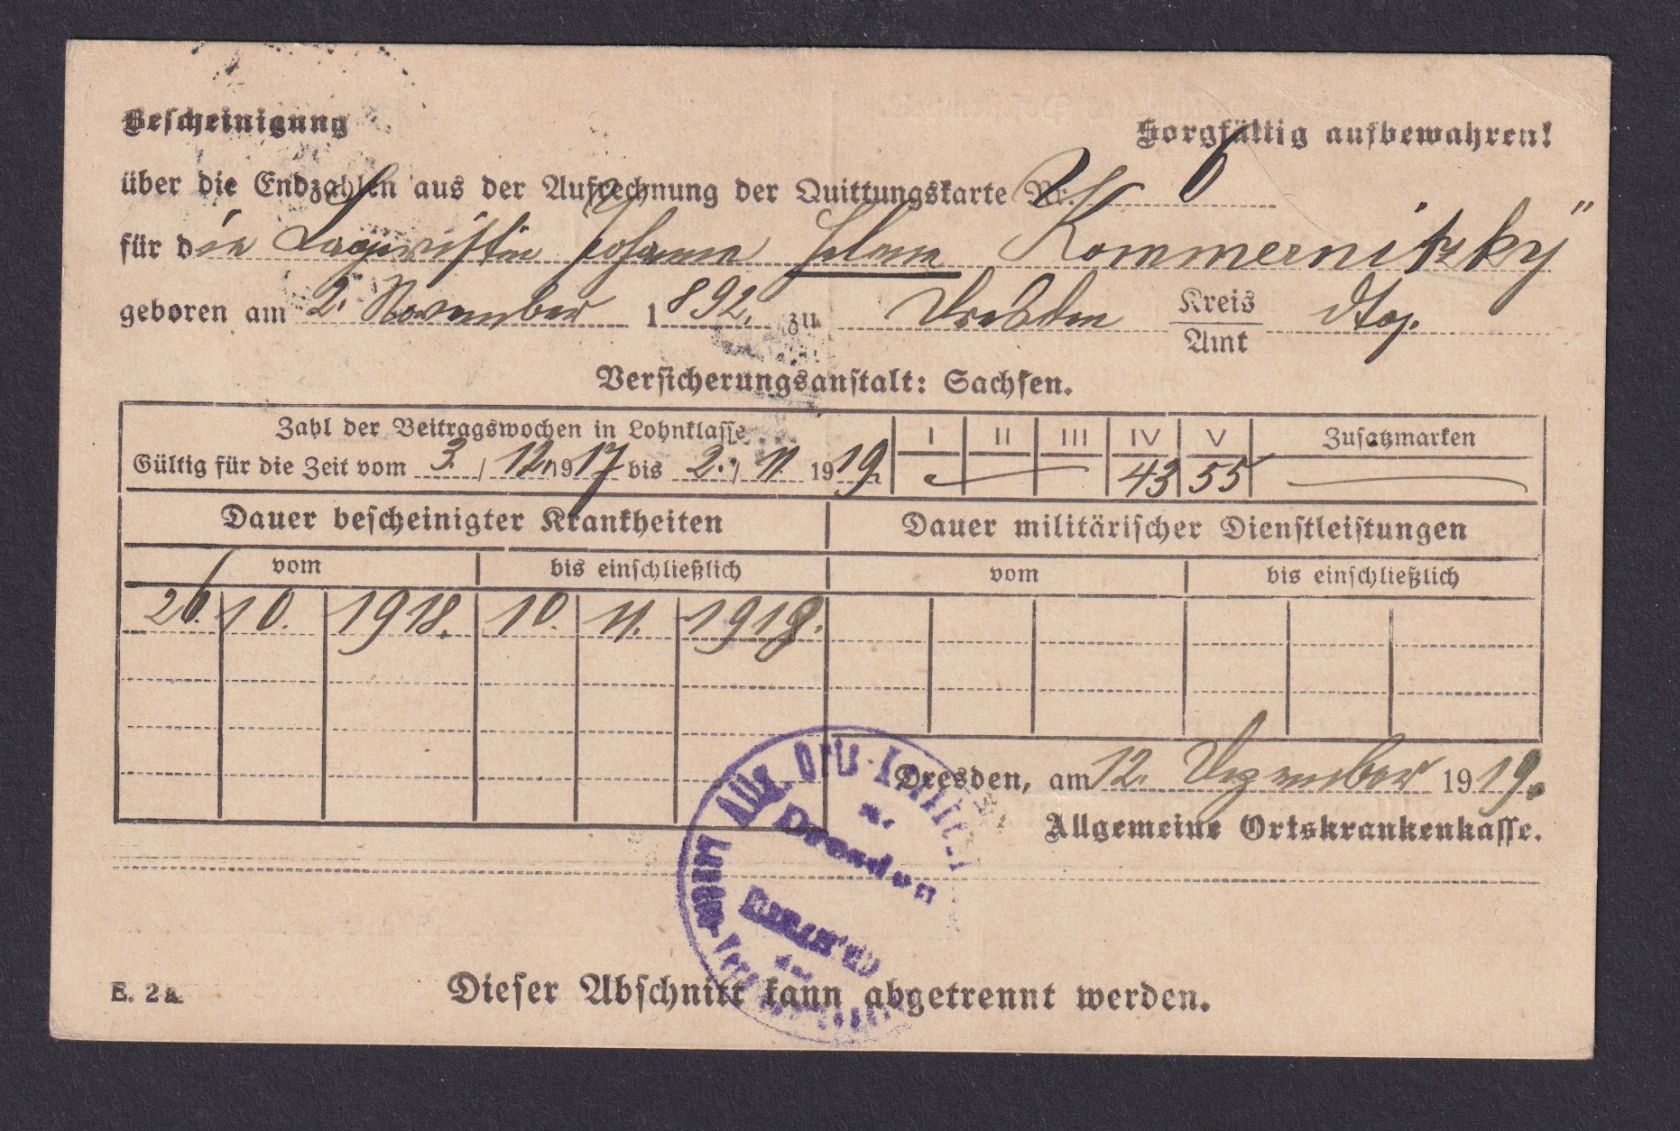 Bescheinigung Sorgfältig aufbewahren!
über die Endzahlen aus der Aufrechnung der Quittungskarte Nr. 6
für die Lageristin Johanna Helene Kommernitzkÿ
geboren am 2. November 1892. zu Dresden Kreis/Amt dto.
Versicherungsanstalt: Sachsen.
Zahl der Beitragswochen in Lohnklasse I II III IV V Zusatzmarken
Gültig für die Zeit vom 3. / 12. 1917 bis 2. / 11 1919. 43 55
Dauer bescheinigter Krankheiten Dauer militärischer Dienstleistungen
vom bis einschließlich vom bis einschließlich
26. 10. 1918. 10. 11. 1918.
Dresden, am 12. Dezember 1919.
Allgemeine Ortskrankenkasse.
Allg. Orts-
Dresden
E. 2a.
Dieser Abschnitt kann abgetrennt werden.